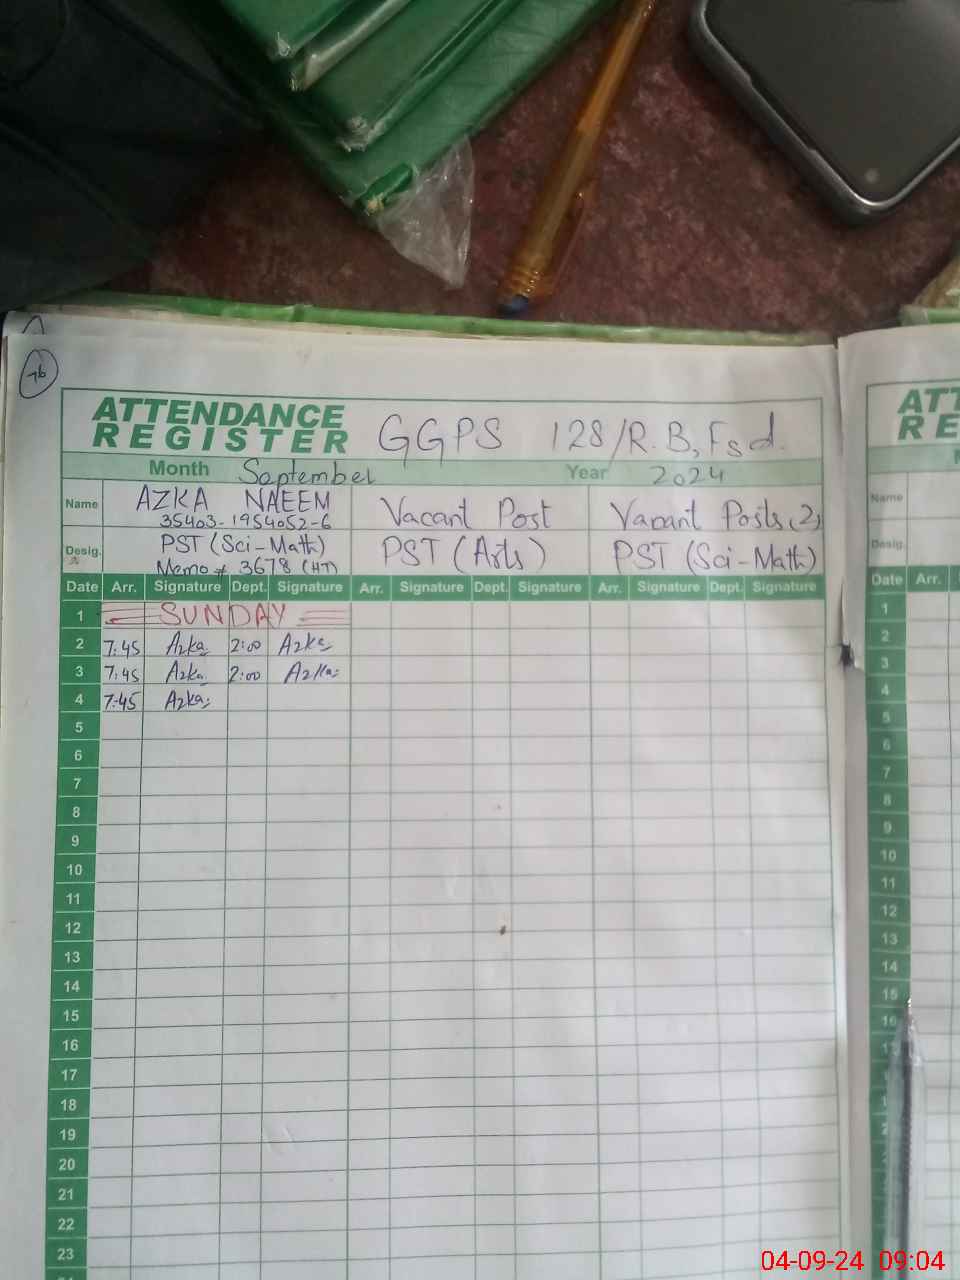 76
ATTENDANCE
REGISTER
GGPS 128/R.B, Fsd.
Month September Year 2024
Name AZKA NAEEM Vacant Post Vacant Posts (2)
35403-1954052-6
Desig. PST (Sci-Math) PST (Arts) PST (Sci-Math)
Memo # 3678 (HT)
Date Arr. Signature Dept. Signature Arr. Signature Dept. Signature Arr. Signature Dept. Signature
1 SUNDAY
2 7:45 Azka 2:00 Azka
3 7:45 Azka 2:00 Azka
4 7:45 Azka
5
6
7
8
9
10
11
12
13
14
15
16
17
18
19
20
21
22
23
ATT
RE
Name
Desig.
Date Arr.
1
2
3
4
5
6
7
8
9
10
11
12
13
14
15
16
04-09-24 09:04